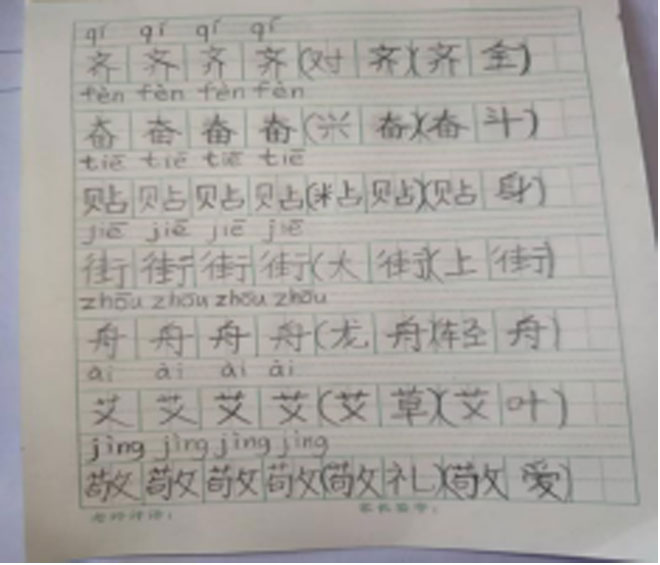 qí qí qí qí
齐 齐 齐 齐(对 齐)(齐 全)
fèn fèn fèn fèn
奋 奋 奋 奋(兴 奋)(奋 斗)
tiē tiē tiē tiē
贴 贴 贴 贴(粘 贴)(贴 身)
jiē jiē jiē jiē
街 街 街 街(大 街)(上 街)
zhōu zhōu zhōu zhōu
舟 舟 舟 舟(龙 舟)(轻 舟)
ài ài ài ài
艾 艾 艾 艾(艾 草)(艾 叶)
jìng jìng jìng jìng
敬 敬 敬 敬(敬 礼)(敬 爱)
老师评语：   家长签字：